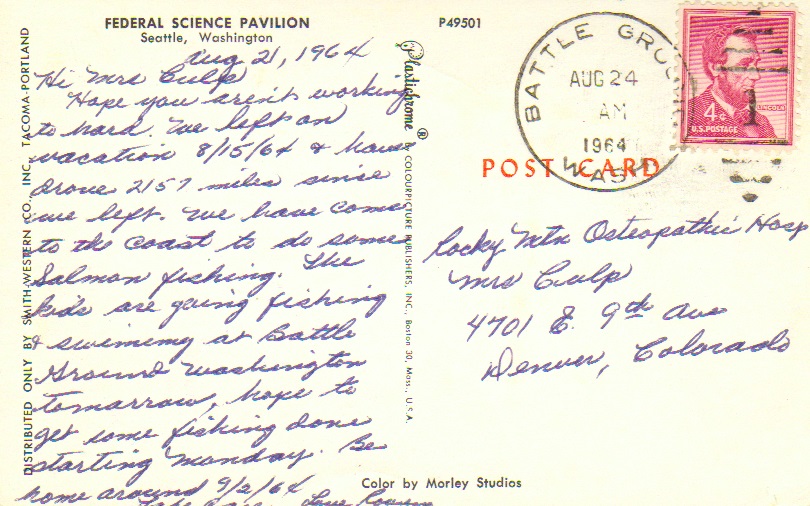 FEDERAL SCIENCE PAVILION
Seattle, Washington
P49501
Aug 21, 1964
Hi Mrs Culp
Hope you aren't working
to hard. We left on
vacation 8/15/64 & have
drove 2157 miles since
we left. We have come
to the coast to do some
Salmon fishing. The
kids are going fishing
& swimming at Battle
Ground Washington
tomorrow, hope to
get some fishing done
starting Monday. Be
home around 9/2/64
Take Care. Love
DISTRIBUTED ONLY BY SMITH-WESTERN CO., INC. TACOMA-PORTLAND
Plastichrome ® BY COLOURPICTURE PUBLISHERS, INC., Boston 30, Mass., U.S.A.
BATTLE GROUND
AUG 24
AM
1964
WASH
4¢
LINCOLN
U.S. POSTAGE
POST CARD
Rocky Mtn Osteopathic Hosp
Mrs Culp
4701 E. 9th Ave
Denver, Colorado
Color by Morley Studios